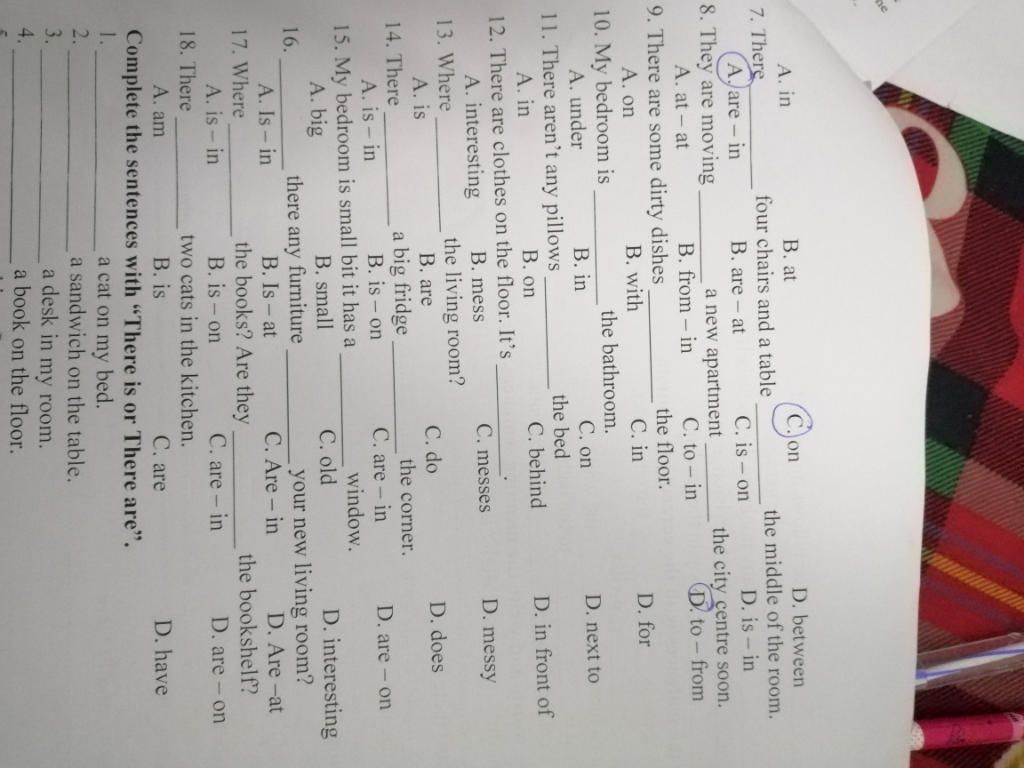 ne
A. in B. at C. on D. between
7. There ________ four chairs and a table ________ the middle of the room.
A. are – in B. are – at C. is – on D. is – in
8. They are moving ________ a new apartment ________ the city centre soon.
A. at – at B. from – in C. to – in D. to – from
9. There are some dirty dishes ________ the floor.
A. on B. with C. in D. for
10. My bedroom is ________ the bathroom.
A. under B. in C. on D. next to
11. There aren't any pillows ________ the bed
A. in B. on C. behind D. in front of
12. There are clothes on the floor. It's ________.
A. interesting B. mess C. messes D. messy
13. Where ________ the living room?
A. is B. are C. do D. does
14. There ________ a big fridge ________ the corner.
A. is – in B. is – on C. are – in D. are – on
15. My bedroom is small bit it has a ________ window.
A. big B. small C. old D. interesting
16. ________ there any furniture ________ your new living room?
A. Is – in B. Is – at C. Are – in D. Are –at
17. Where ________ the books? Are they ________ the bookshelf?
A. is – in B. is – on C. are – in D. are – on
18. There ________ two cats in the kitchen.
A. am B. is C. are D. have
Complete the sentences with “There is or There are”.
1. ________ a cat on my bed.
2. ________ a sandwich on the table.
3. ________ a desk in my room.
4. ________ a book on the floor.